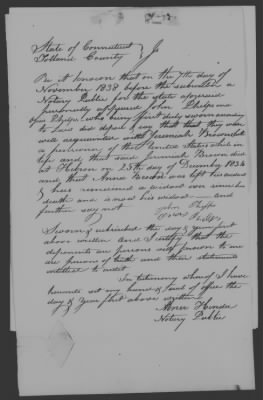 State of Connecticut
Tolland County
Be it known that on the 7th day of
November 1838 before the subscriber a
Notary Public for the state aforesaid
personally appeared John Phelps and
Phelps, who being first duly sworn
to have did depose & say that they were
well acquainted with Jeremiah Brown
a pensioner of the United States while in
life and that said Jeremiah Brown died
at Hebron on 25th day of December 1834
and that Anna Brown was left his widow
& has remained a widow ever since his
death and is now his widow and
further say not John Phelps
Phelps
Sworn & subscribed the day & year first
above written and I certify that the
deponents are persons well known to me
are persons of truth and their statement
entitled to credit
In testimony whereof I have
hereunto set my hand & seal of office the
day & year first above written
Abner Hendee
Notary Public